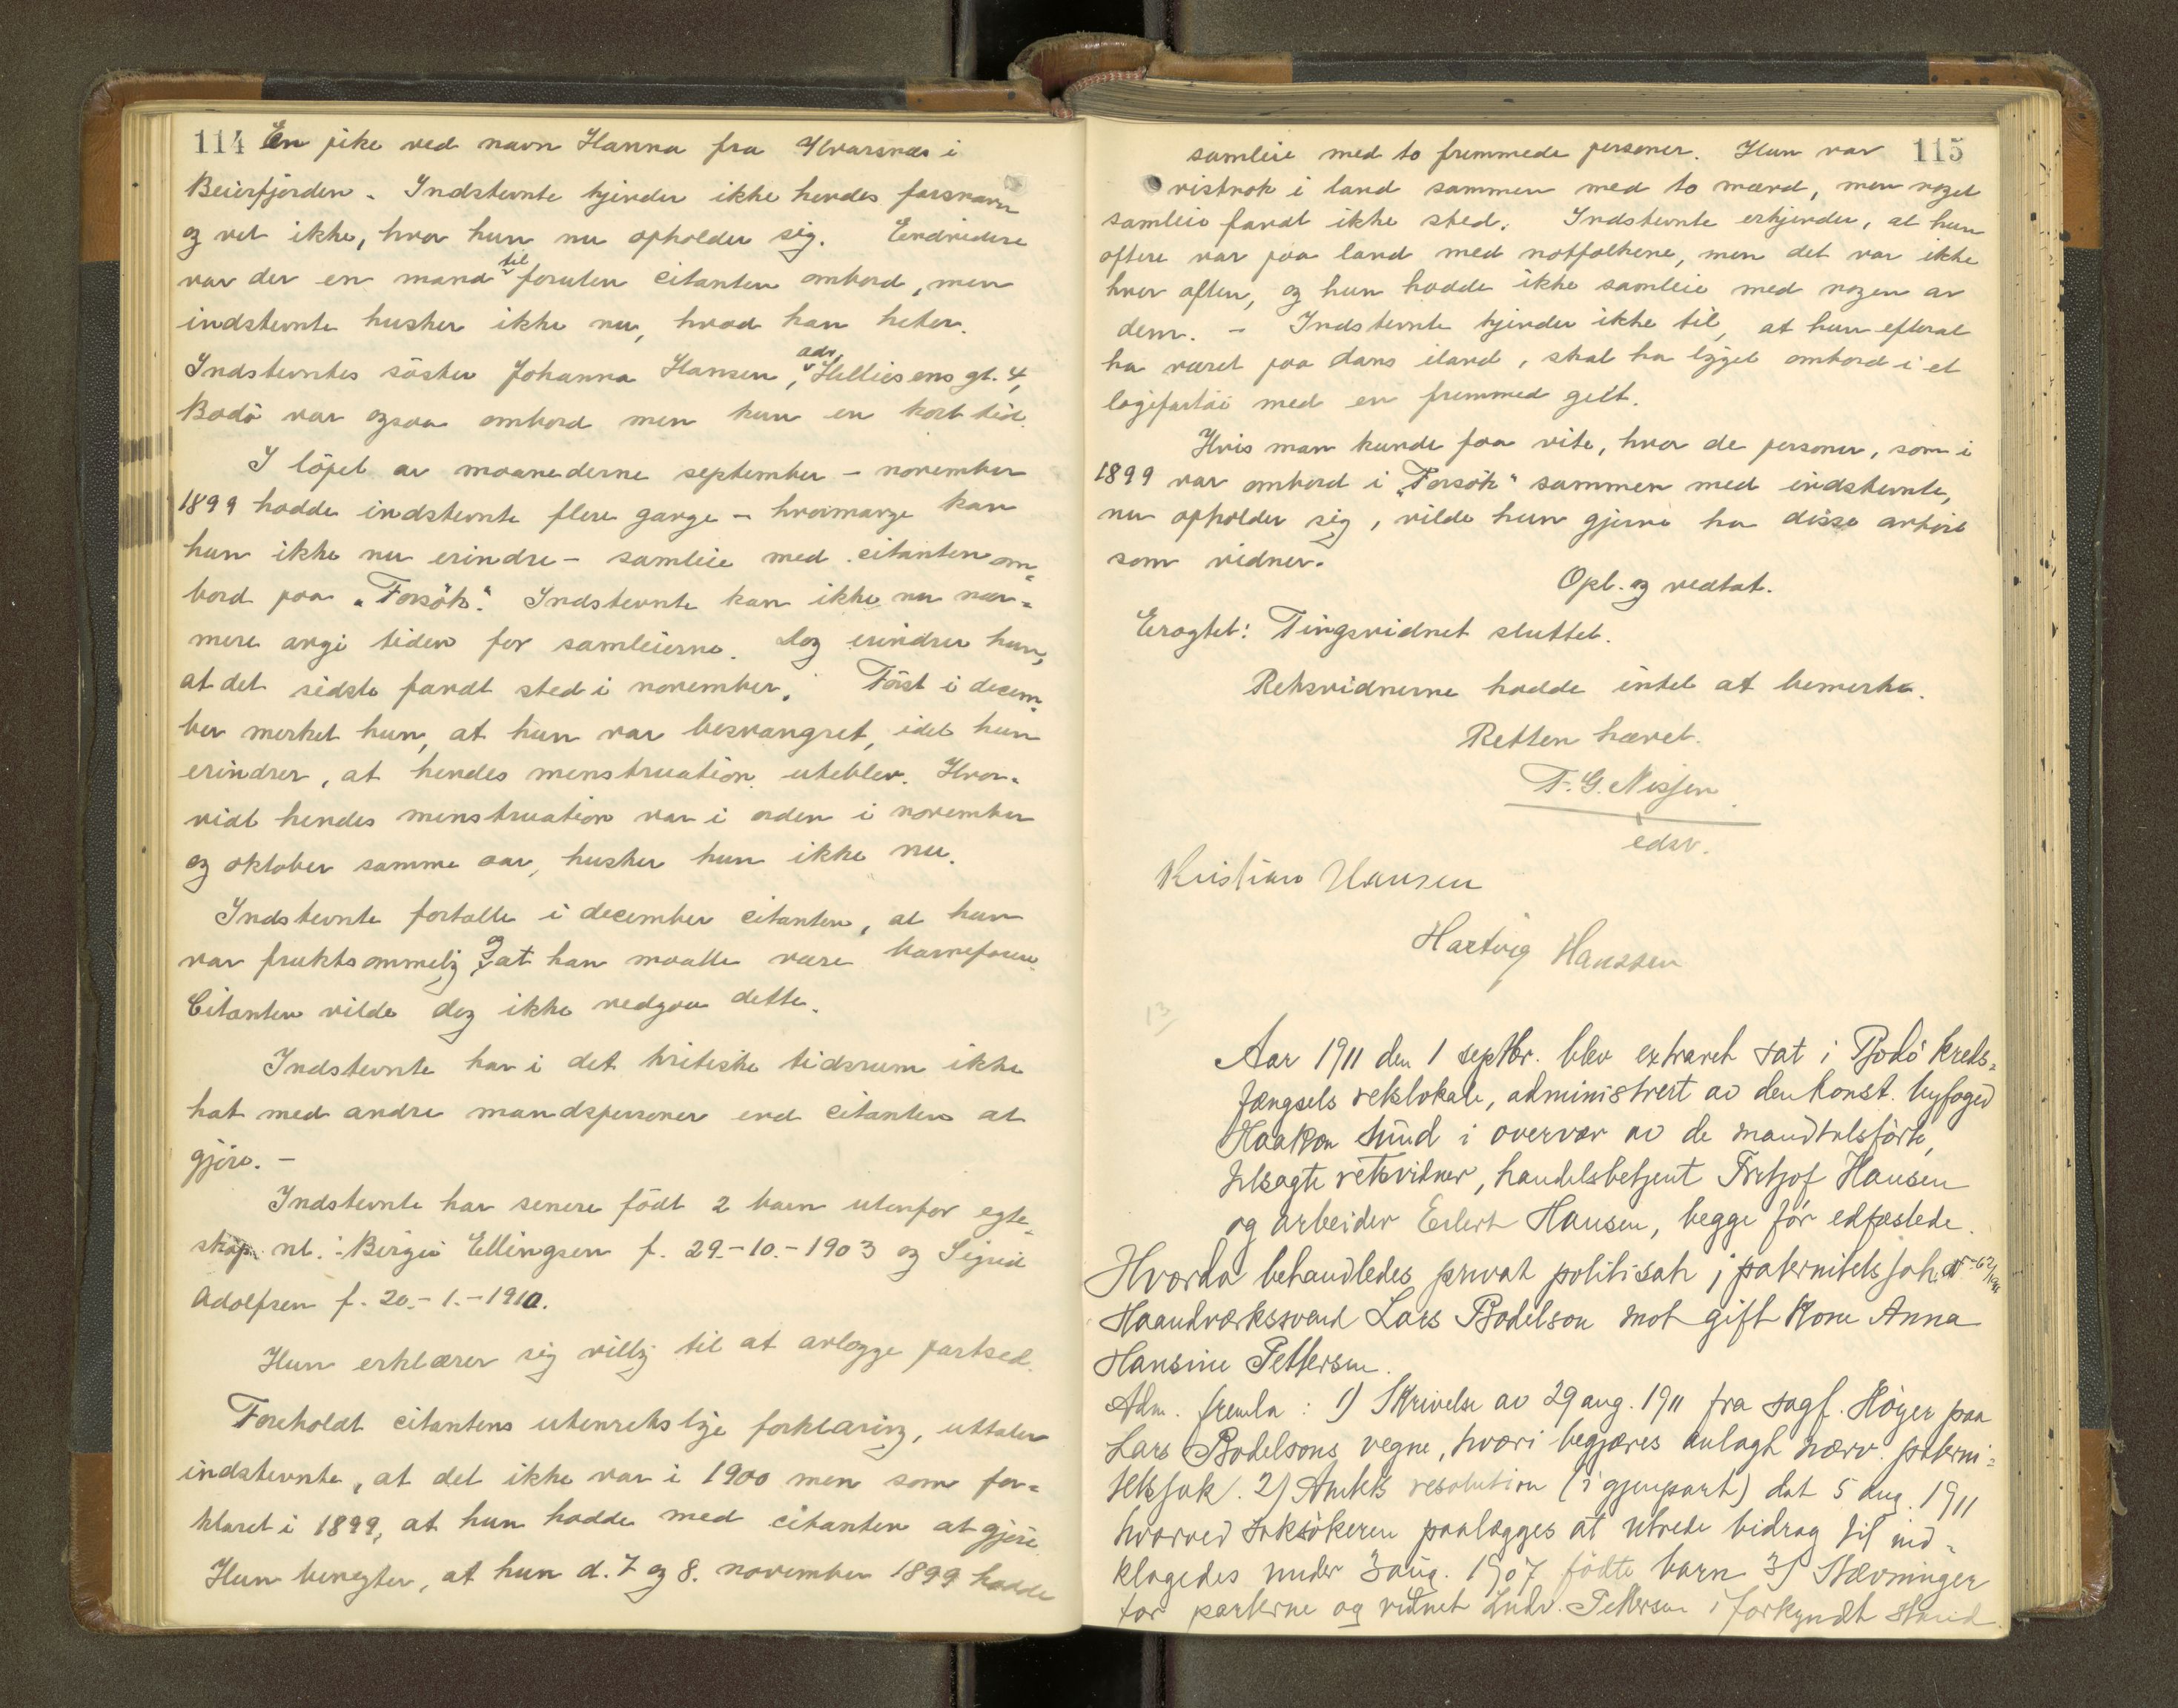 114 En pike ved navn Hanna fra Kvarsnes i
Beierfjorden. Indstevnte kjender ikke hendes farsnavn
og vet ikke, hvor hun nu opholder sig. Endvidere
var der en mand til foruten citanten ombord, men
indstevnte husker ikke nu, hvad han heter.
Indstevntes söster Johanna Hansen, adr. Helliesens gt. 4,
Bodö var ogsaa ombord men kun en kort tid.
I löpet av maanederne september – november
1899 hadde indstevnte flere gange – hvormange kan
hun ikke nu erindre – samleie med citanten om-
bord paa "Forsök". Indstevnte kan ikke nu nær-
mere angi tiden for samleierne. Dog erindrer hun,
at det sidste fandt sted i november. Först i decem-
ber merket hun, at hun var besvangret, idet hun
erindrer, at hendes menstruation uteblev. Hvor-
vidt hendes menstruation var i orden i november
og oktober samme aar, husker hun ikke nu.
Indstevnte fortalte i december citanten, at hun
var fruktsommelig og at han maatte være barnefaren.
Citanten vilde dog ikke vedgaa dette.
Indstevnte har i det kritiske tidsrum ikke
hat med andre mandspersoner end citanten at
gjöre. –
Indstevnte har senere födt 2 barn utenfor egte-
skap nl.: Birgit Ellingsen f. 29.-10.-1903 og Sigrid
Adolfsen f. 20.-1.-1910.
Hun erklærer sig villig til at avlægge partsed.
Foreholdt citantens utenretslige forklaring, uttaler
indstevnte, at det ikke var i 1900 men som for-
klaret i 1899, at hun hadde med citanten at gjöre.
Hun benegter, at hun d. 7 og 8. november 1899 hadde
115
samleie med to fremmede personer. Hun var
vistnok i land sammen med to mænd, men noget
samleie fandt ikke sted. Indstevnte erkjender, at hun
oftere var paa land med notfolkene, men det var ikke
hver aften, og hun hadde ikke samleie med nogen av
dem. – Indstevnte kjender ikke til, at hun efterat
ha været paa dans iland, skal ha ligget ombord i et
logifartöi med en fremmed gut.
Hvis man kunde faa vite, hvor de personer, som i
1899 var ombord i "Forsök" sammen med indstevnte,
nu opholder sig, vilde hun gjerne ha disse avhört
som vidner.
Opl. og vedtat.
Eragtet: Tingsvidnet sluttet.
Retsvidnerne hadde intet at bemerke.
Retten hævet.
F. G. Nissen
edsv.
Kristian Hansen
Hartvig Hanssen
13
Aar 1911 den 1 septbr. blev extraret sat i Bodö kreds-
fængsels retslokale, administrert av den konst. byfoged
Haakon Sund i overvær av de mandtalsförte,
tilsagte retsvidner, handelsbetjent Fritjof Hansen
og arbeider Eilert Hansen, begge för edfæstede.
Hvorda behandledes privat politisak i paternitetssak nr 62/1911
Haandværkssvend Lars Bodelson mot gift kone Anna
Hansine Pettersen.
Adm. fremla: 1) Skrivelse av 29 aug. 1911 fra sagf. Höyer paa
Lars Bodelsons vegne, hvori begjæres anlagt nærv. paterni-
tetssak. 2) Amtets resolution (i gjenpart) dat 5 aug. 1911
hvorved saksökeren paalægges at utrede bidrag til ind-
klagedes under 3 aug. 1907 födte barn 3) Stævninger
for parterne og vidnet Ludv. Pettersen i forkyndt stand